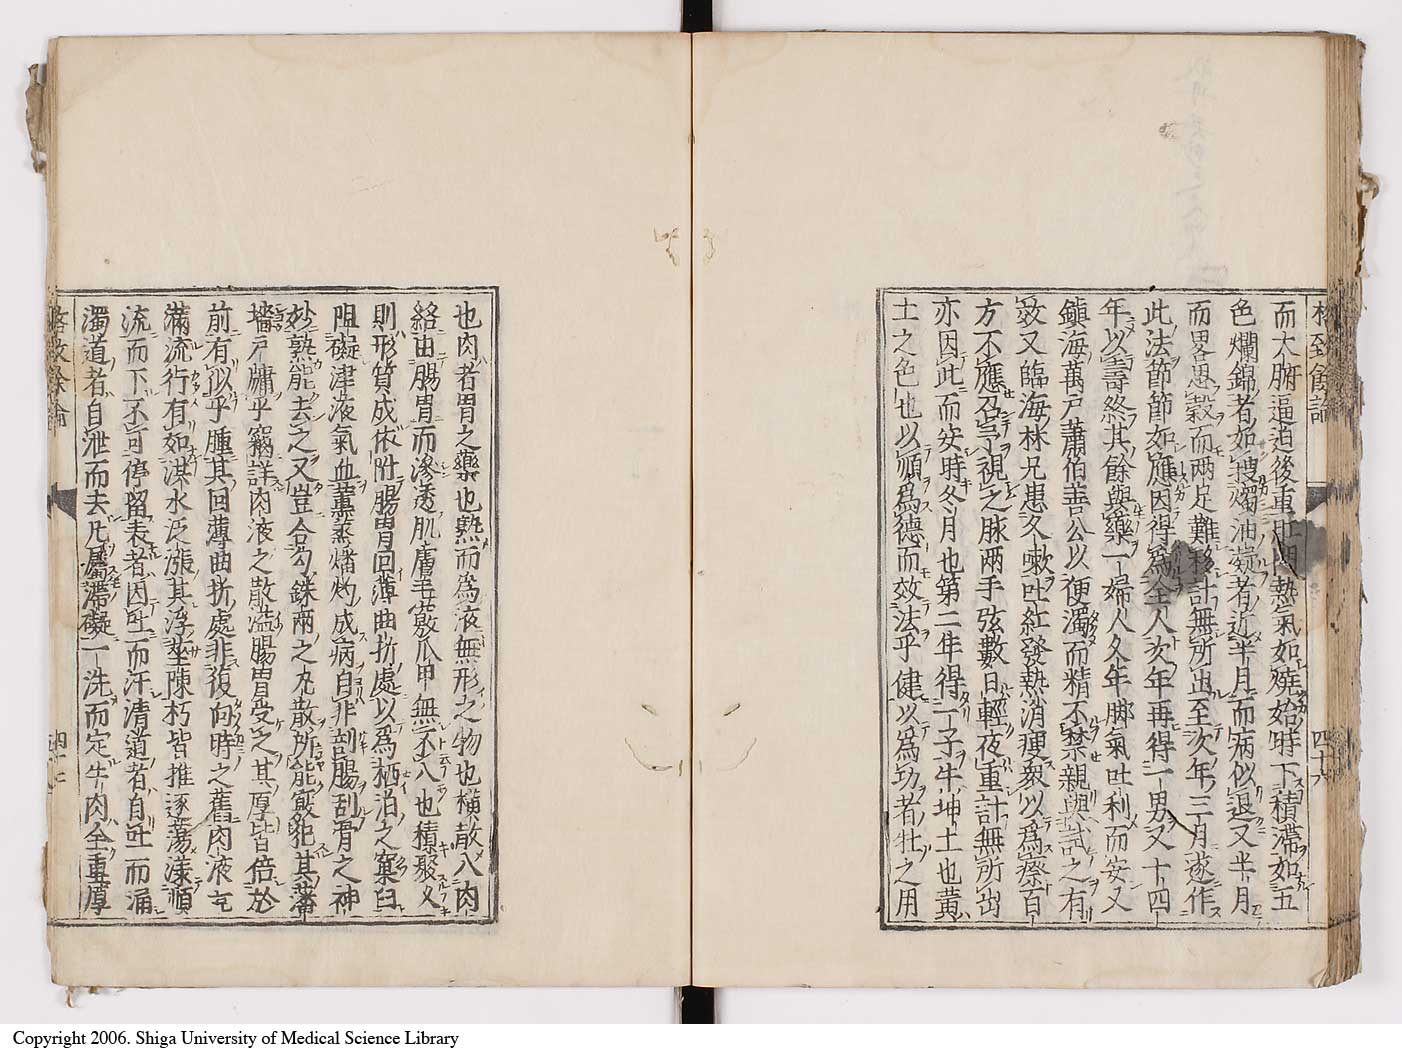 格致餘論 四十六
而大腑逼迫後重肛門熱氣如燒始時下積滯如五
色爛錦者如㮶燭油凝者近半月而病似退又半月
而畧思穀而両足難移計無所出至次年三月遂作
此法節節如應因得為全人次年再得一男又十四
年以壽終其餘與藥一婦人久年脚氣吐利而安又
鎮海萬戸蕭伯善公以便濁而精不禁親與試之有
效又臨海林兄患久嗽吐紅發熱消瘦衆以為瘵百
方不應召予視之脉両手弦數日輕夜重計無所出
亦因此而安時冬月也第二年得一子牛坤土也黃
土之色也以順為德而效法乎健以為功者牡之用
也肉者胃之藥也熟而為液無形之物也横散入肉
絡由腸胃而滲透肌膚毛竅爪甲無不入也積聚久
則形質成依附腸胃回薄曲折處以為栖泊之窠臼
阻礙津液氣血薰蒸燔灼成病自非剖腸刮骨之神
妙孰能去之又豈合勺銖両之丸散所能竅犯其藩
墻戸牖乎竊詳肉液之散溢腸胃受之其厚皆倍於
前有似乎腫其回薄曲折處非復向時之舊肉液充
滿流行有如洪水泛漲其浮莝陳朽皆推逐蕩漾順
流而下不可停留表者因吐而汗清道者自吐而涌
濁道者自泄而去凡属滯礙一洗而定牛肉全重厚
格致餘論 四十七
Copyright 2006. Shiga University of Medical Science Library